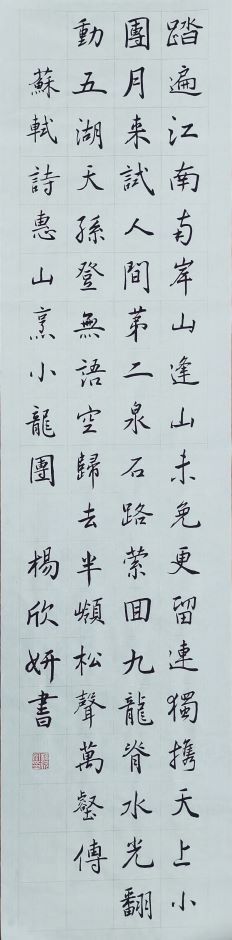 踏遍江南南岸山逢山未免更留連獨携天上小
團月来試人間第二泉石路縈回九龍脊水光翻
動五湖天孫登無語空歸去半嶺松聲萬壑傳
蘇軾詩惠山烹小龍團 楊欣妍書